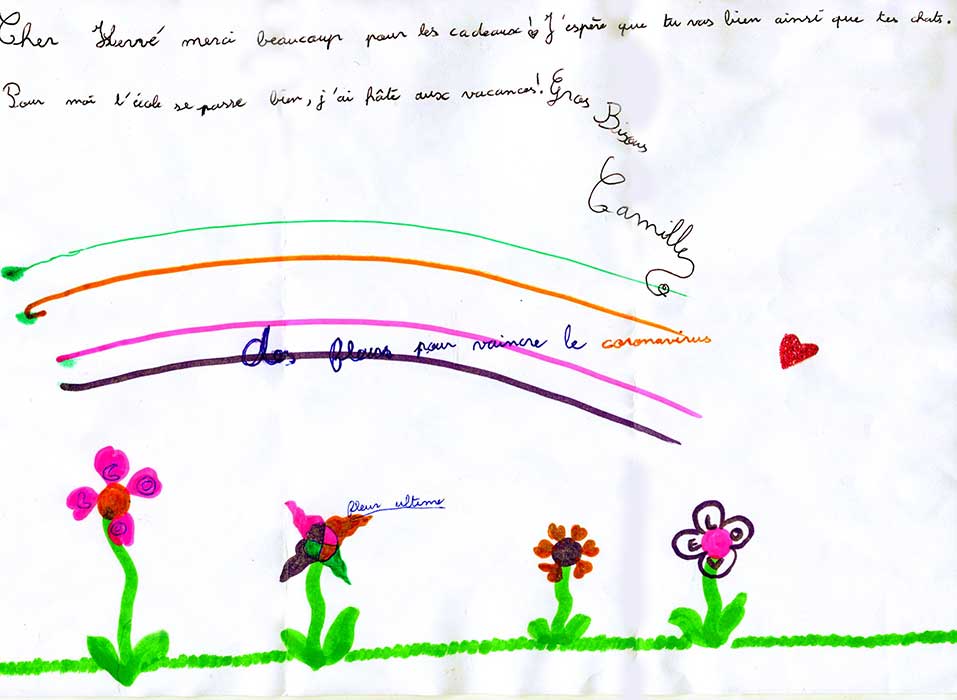 Cher Hervé merci beaucoup pour les cadeaux! J'espère que tu vas bien ainsi que tes chats.
Pour moi l'école se passe bien, j'ai hâte aux vacances! Gros
Bisous
Camille
des fleurs pour vaincre le coronavirus
fleur ultime